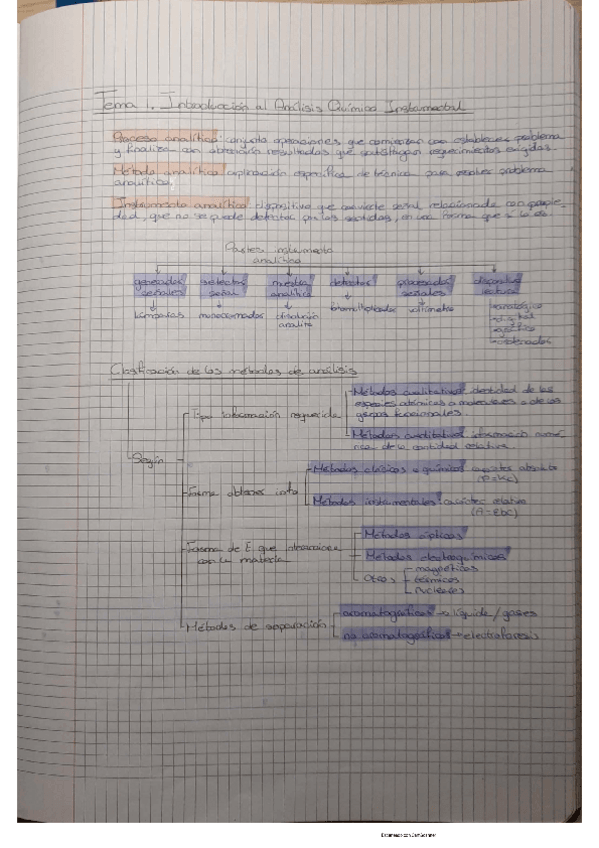 Tema 1. Introducción al Análisis Químico Instrumental
Proceso analítico: conjunto operaciones, que comienzan con establecer problema
y finaliza con obtención resultados que satisfagan requerimientos exigidos.
Método analítico: aplicación específica de técnica para resolver problema
analítico.
Instrumento analítico: dispositivo que convierte señal relacionada con propie-
dad, que no se puede detectar por los sentidos, en una forma que sí lo es.
Partes instrumento
analítico
generador señales
selector señal
muestra analítica
detector
procesador señales
dispositivo lectura
lámparas
monocromador
disolución analito
voltímetro
analógico
digital
gráfico
ordenador
Clasificación de los métodos de análisis
Según
Tipo información requerida
Métodos cualitativos: identidad de las
especies atómicas o moleculares o de los
grupos funcionales.
Métodos cuantitativos: información numé-
rica de la cantidad relativa.
Forma obtener info
Métodos clásicos o químicos: carácter absoluto
Métodos instrumentales: carácter relativo
(A=εbc)
Forma de E que interacciona
con la materia
Métodos ópticos
Métodos electroquímicos
Otros
magnéticos
térmicos
nucleares
Métodos de separación
cromatográficos → líquido/gases
no cromatográficos → electroforesis
Escaneado con CamScanner